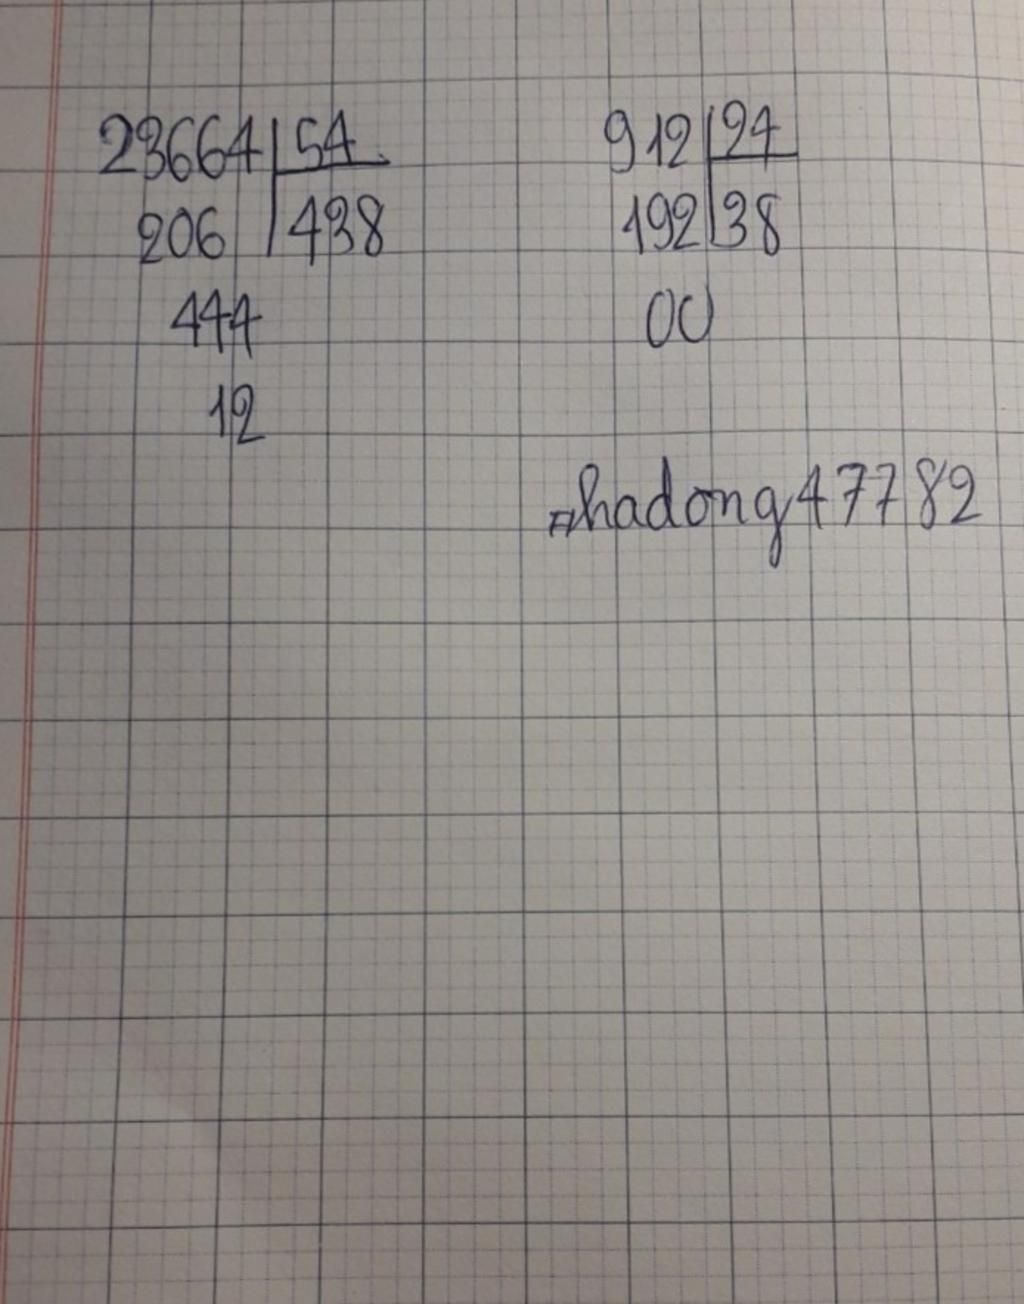 23664 54
206 438
444
12
912 24
192 38
00
#hadong47782